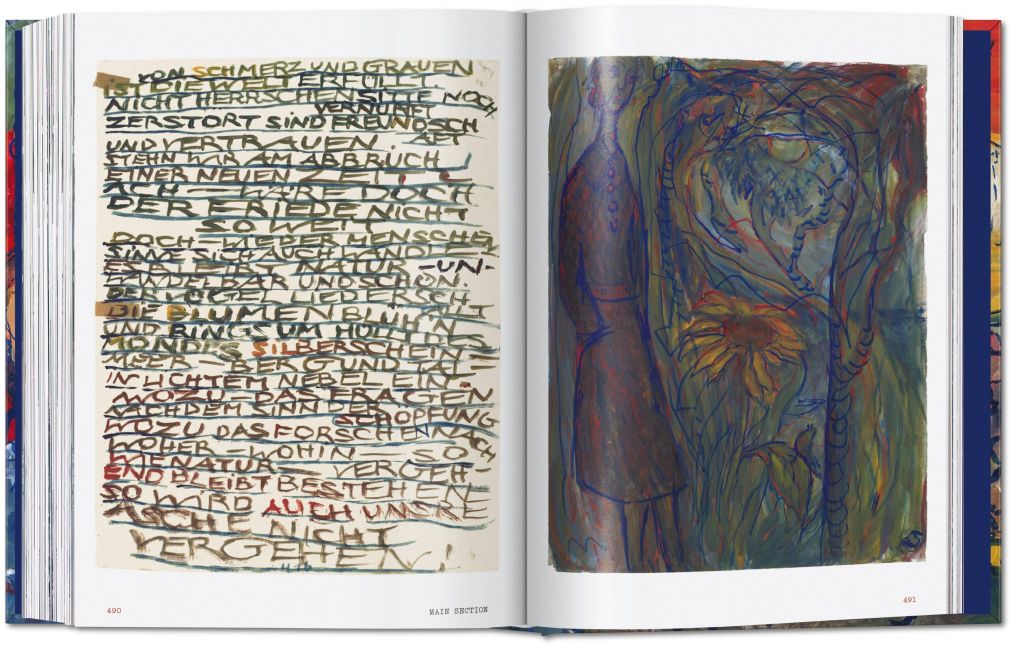 VON SCHMERZ UND GRAUEN
IST DIE WELT ERFÜLLT.
NICHT HERRSCHEN SITTE NOCH
VERNUNFT
ZERSTÖRT SIND FREUNDSCH
AFT
UND VERTRAUEN.
STEHN WIR AM ABBRUCH
EINER NEUEN ZEIT!
ACH — WÄRE DOCH
DER FRIEDE NICHT
SO WEIT
DOCH — WIE DER MENSCHEN
SINNE SICH AUCH WAND —
BLEIBT NATUR — UN-
WANDELBAR UND SCHÖN.
DER VÖGEL LIED ERSCH
ALT
DIE BLUMEN BLÜH'N
UND RINGS UM HÜLLT DES
MONDES SILBERSCHEIN =
MEER — BERG UND TAL —
IN LICHTEM NEBEL EIN.
WOZU — DAS FRAGEN
NACH DEM SINN DER
SCHÖPFUNG
WOZU DAS FORSCHEN NACH
WOHER — WOHIN — SO
WIE NATUR — VERGEH-
END BLEIBT BESTEHEN
SO WIRD AUCH UNSRE
ASCHE NICHT
VERGEHEN!
490
MAIN SECTION
491